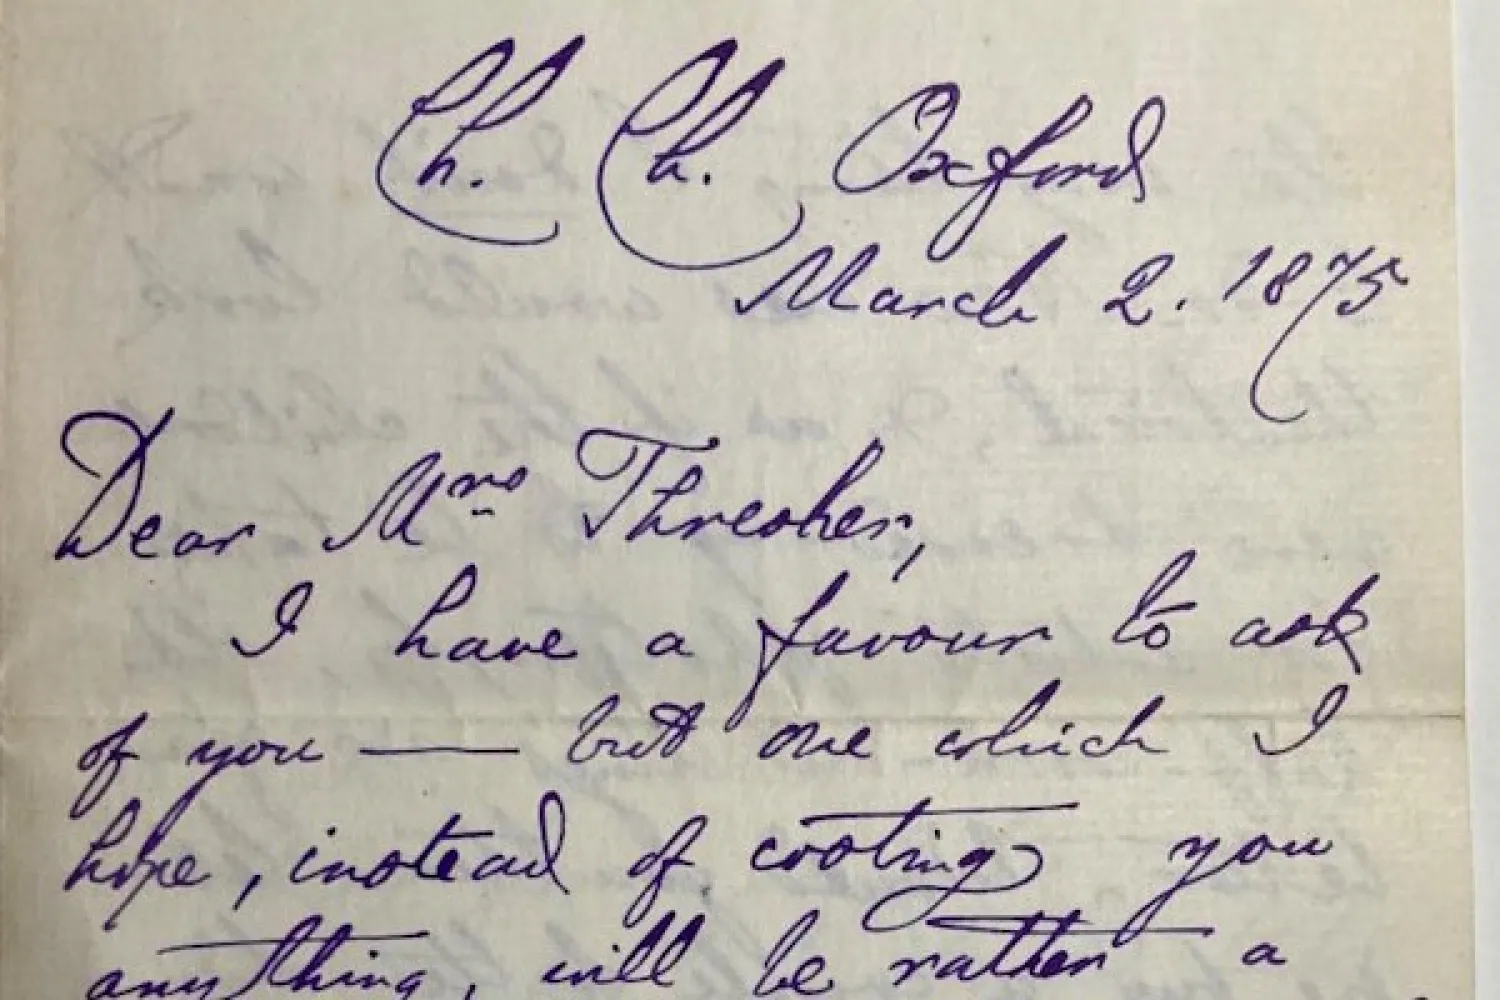 Ch. Ch. Oxford
March 2. 1875
Dear Mrs Thresher,
I have a favour to ask
of you — but one which I
hope, instead of costing you
anything, will be rather a